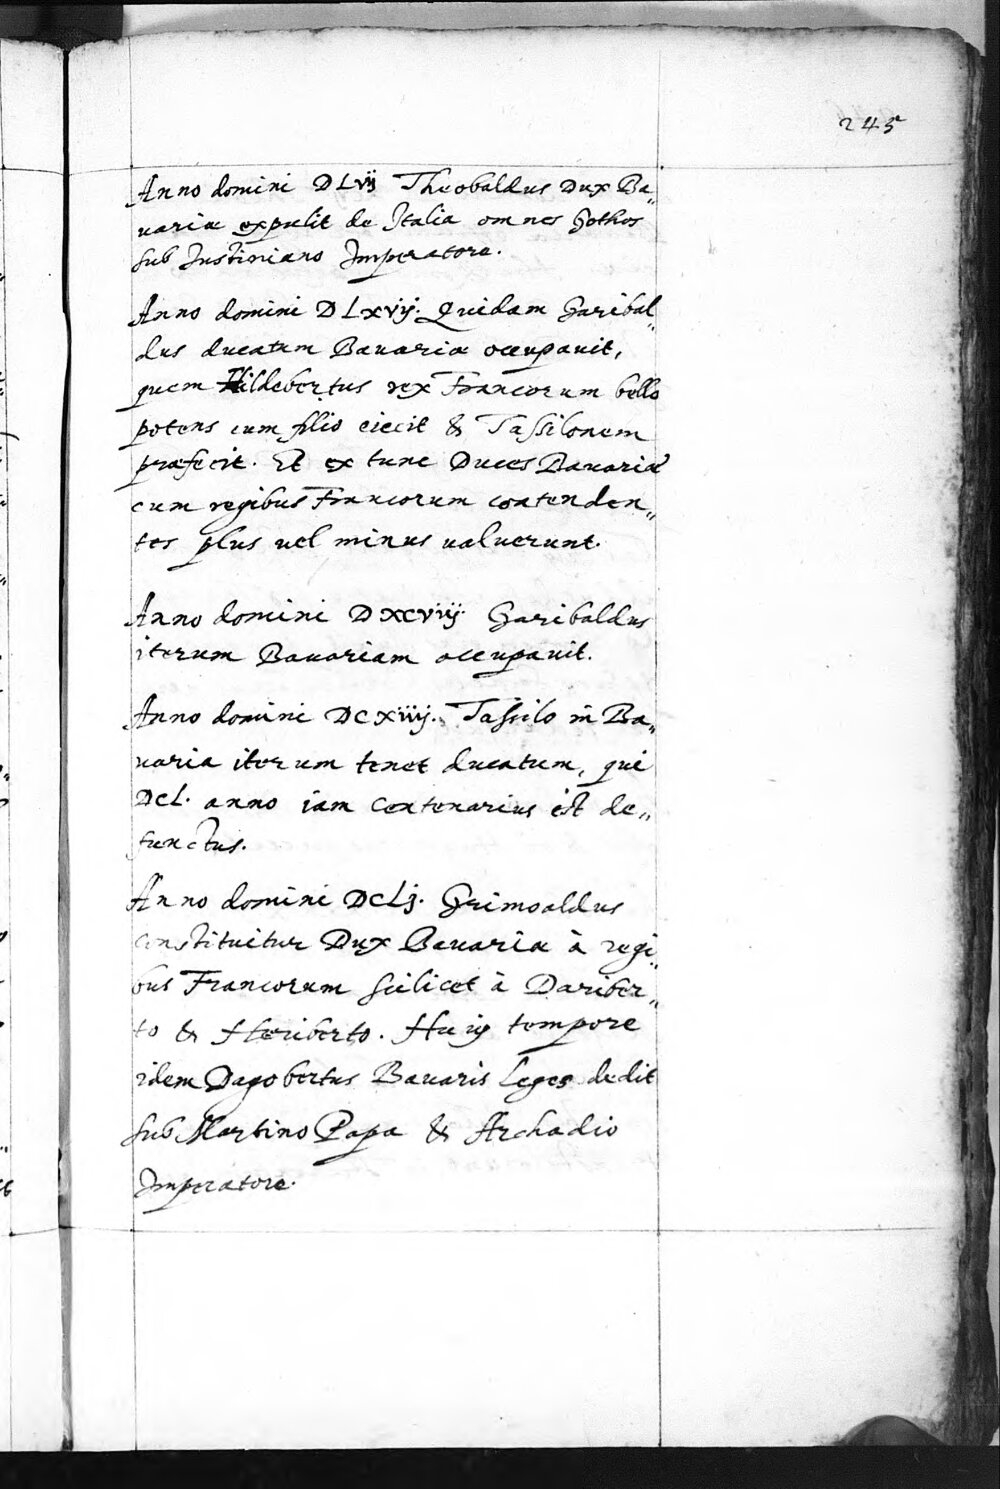 245
Anno domini DLVij Theobaldus Dux Ba„
uariæ expulit de Italia omnes Gothos
sub Iustiniano Imperatore.
Anno domini DLxvij. Quidam Garibal„
dus ducatum Bauariæ occupauit,
quem Hildebertus rex Francorum bello
potens cum filio eiecit & Tassilonem
præfecit. Et ex tunc Duces Bauariæ
cum regibus Francorum contenden„
tes plus uel minus ualuerunt.
Anno domini DXCViij. Garibaldus
iterum Bauariam occupauit.
Anno domini DCXiiij. Tassilo in Ba„
uaria iterum tenet ducatum, qui
DCL. anno iam centenarius est de„
functus.
Anno domini DCLj. Grimoaldus
constituitur Dux Bauariæ à regi„
bus Francorum scilicet à Dariber„
to & Heriberto. Huiꝯ tempore
idem Dagobertus Bauaris leges dedit
sub Martino Papa & Archadio
Imperatore.